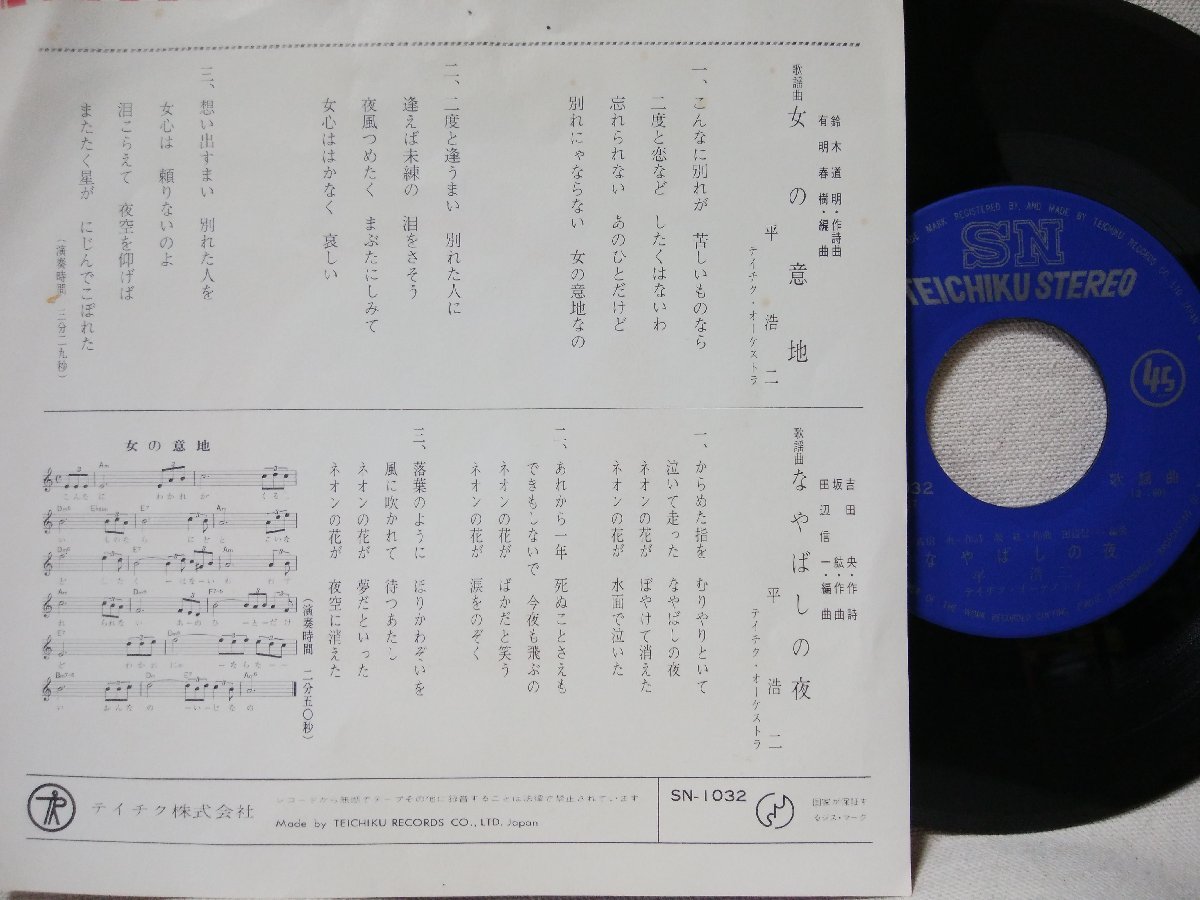 歌謡曲 女の意地
鈴木道明・作詩曲
有明春樹・編曲
平浩二
テイチク・オーケストラ
一、こんなに別れが 苦しいものなら
二度と恋など したくはないわ
忘れられない あのひとだけど
別れにゃならない 女の意地なの
二、二度と逢うまい 別れた人に
逢えば未練の 泪をさそう
夜風つめたく まぶたにしみて
女心ははかなく 哀しい
三、想い出すまい 別れた人を
女心は 頼りないのよ
泪こらえて 夜空を仰げば
またたく星が にじんでこぼれた
(演奏時間 三分二九秒)
歌謡曲 なやばしの夜
吉田 央・作詩
坂 紘・作曲
田辺信一・編曲
平浩二
テイチク・オーケストラ
一、からめた指を むりやりといて
泣いて走った なやばしの夜
ネオンの花が ぼやけて消えた
ネオンの花が 水面で泣いた
二、あれから一年 死ぬことさえも
できもしないで 今夜も飛ぶの
ネオンの花が ばかだと笑う
ネオンの花が 涙をのぞく
三、落葉のように ほりかわぞいを
風に吹かれて 待つあたし
ネオンの花が 夢だといった
ネオンの花が 夜空に消えた
(演奏時間 二分五〇秒)
女の意地
テイチク株式会社
レコードから無断でテープその他に録音することは法律で禁止されています
Made by TEICHIKU RECORDS CO., LTD. Japan
SN-1032
国家が保証する
SN
TEICHIKU STEREO
45
歌謡曲
なやばしの夜
平浩二